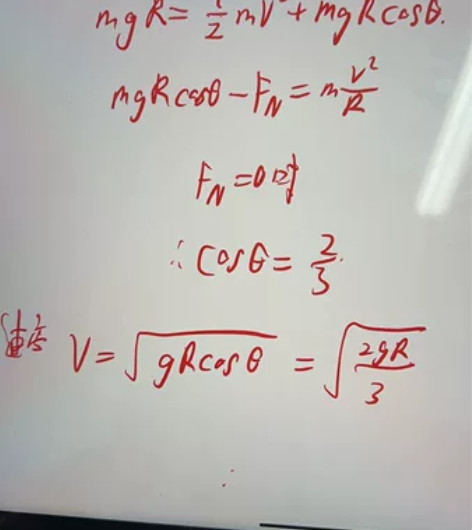 mgR = ½mV² + mgRcosθ.
mgRcosθ - F_N = m v²/R
F_N = 0时
∴ cosθ = 2/3.
速度 V = √(gRcosθ) = √(2gR/3)